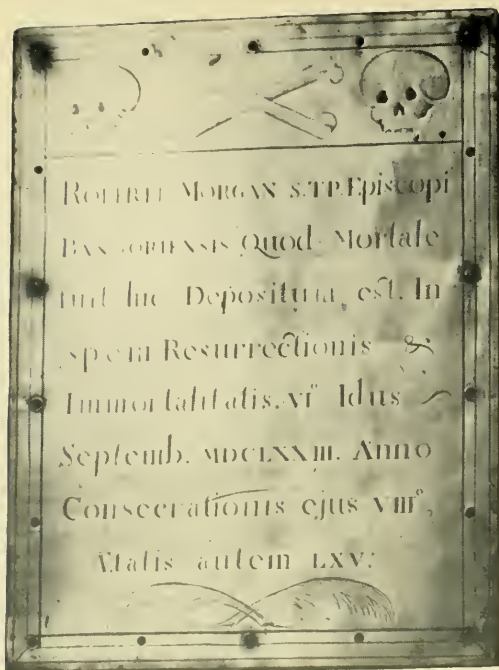 ROBERTI MORGAN S.T.P. Episcopi
BANGORIENSIS Quod Mortale
fuit hic Depositum, est. In
spem Resurrectionis &
Immortalitatis. VIº Idus
Septemb. MDCLXXIII. Anno
Consecrationis ejus VIIIº,
Ætatis autem LXV.